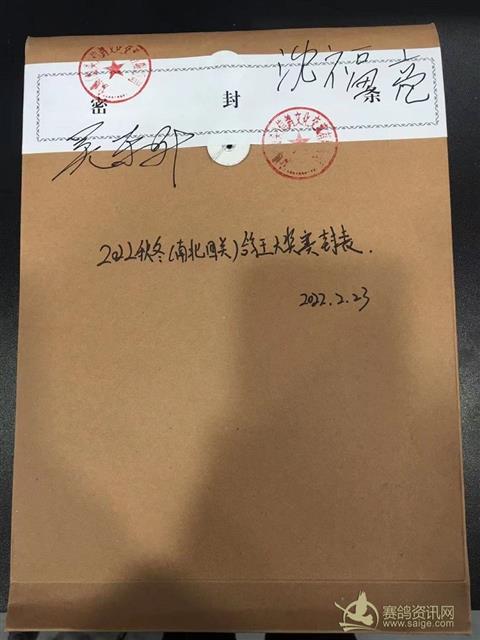 沈福亮
密 封 条
2022秋冬(南北四关)鸽王大奖赛封表.
2022.2.23
赛鸽资讯网
www.saige.com